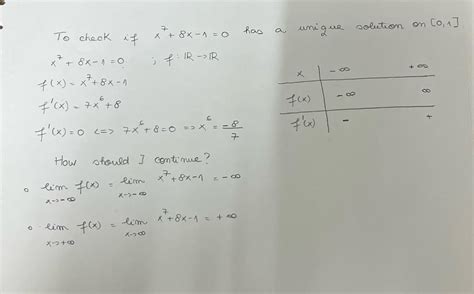 To check if x⁷ + 8x - 1 = 0 has a unique solution on [0,1]
x⁷ + 8x - 1 = 0 ; f: ℝ → ℝ
f(x) = x⁷ + 8x - 1
f'(x) = 7x⁶ + 8
f'(x) = 0 <=> 7x⁶ + 8 = 0 => x⁶ = -8/7
x | -∞ +∞
f(x) | -∞ ∞
f'(x) | - +
How should I continue?
○ lim x→-∞ f(x) = lim x→-∞ x⁷ + 8x - 1 = -∞
○ lim x→+∞ f(x) = lim x→∞ x⁷ + 8x - 1 = +∞